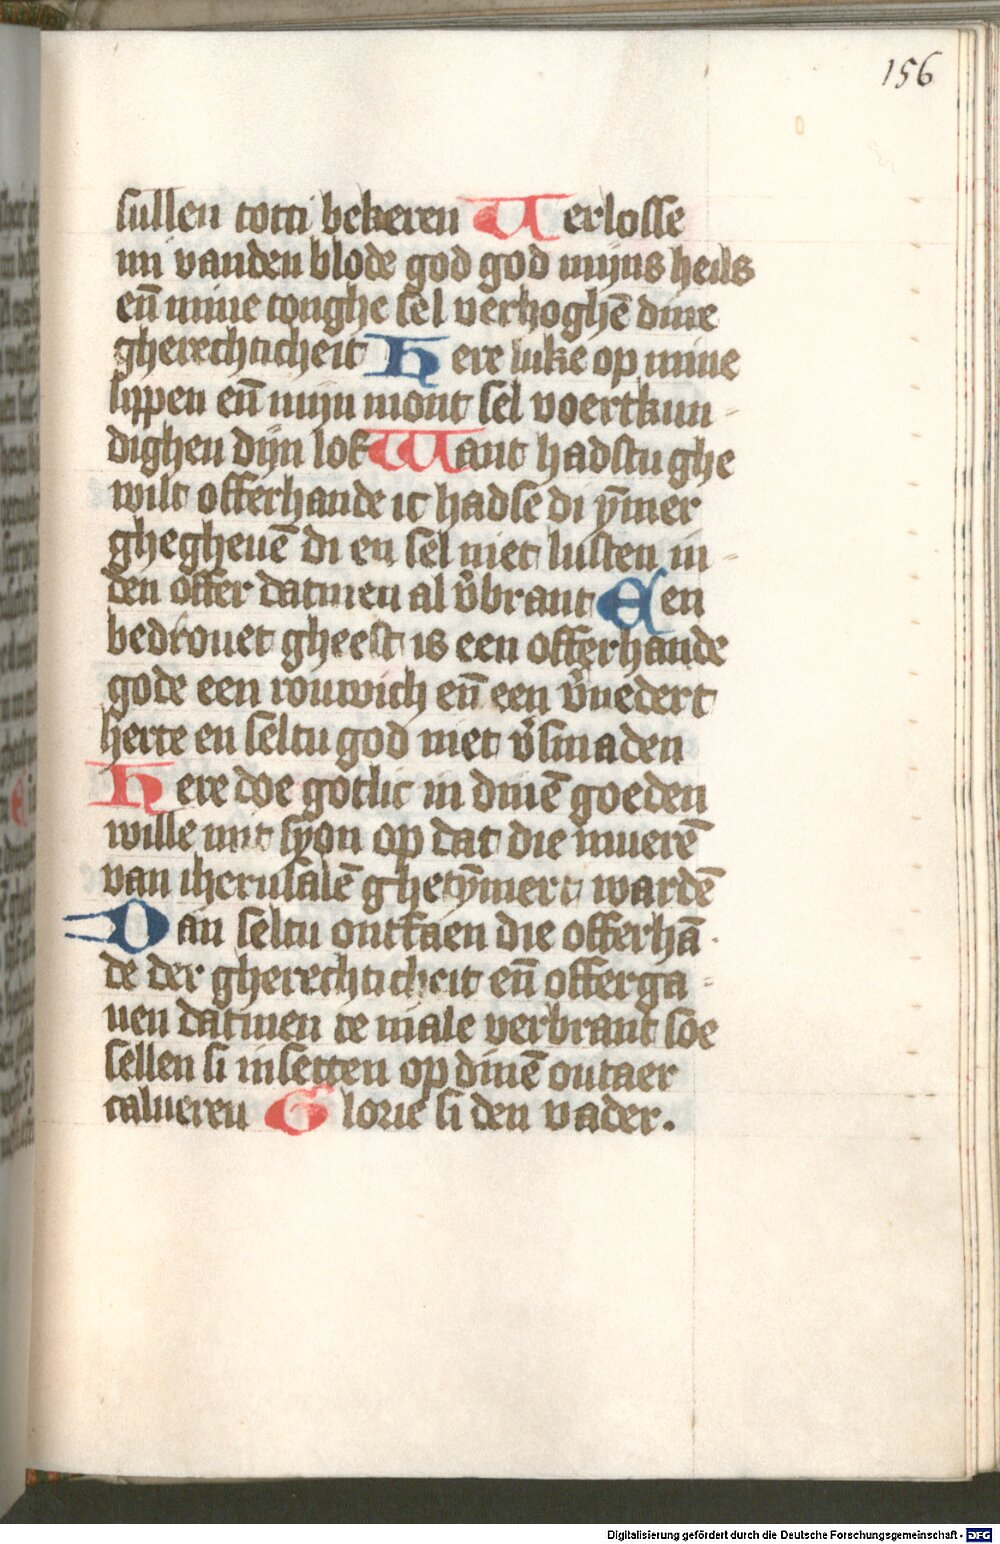 156
sullen totti bekeren Verlosse
mi vanden blode god god mijns heils
en̄ mine tonghe sel verhoghē dine
gherechticheit Here luke op mine
lippen en̄ mijn mont sel voertkun-
dighen dijn lof Want hadstu ghe
wilt offerhande ic hadse di ȳmer
ghegheuē di en sel niet lusten in-
den offer datmen al v̓brant Een
bedrouet gheest is een offerhande
gode een rouwich en̄ een v̓nedert
herte en seltu god niet v̓smaden
Here doe gotlic in dinē goeden
wille mit syon op dat die muerē
van iherusalē ghetȳmert wardē
Dan seltu ontfaen die offerhā-
de der gherechticheit en̄ offerga-
uen datmen te male verbrant soe
sellen si insetten op dinē outaer
calueren Glorie si den vader.
Digitalisierung gefördert durch die Deutsche Forschungsgemeinschaft - DFG